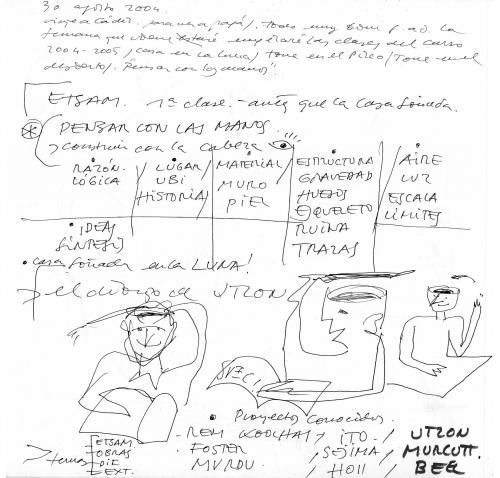 30 agosto 2004.
viaje a Cádiz, para ver a papá/. Todos muy bien f. a D. La
semana que viene empezaré las clases del curso
2004-2005/ casa en la Luna/ Torre en el Polo/ Torre en el
desierto/. "Pensar con las manos".
ETSAM. 1ª clase. - antes que la casa soñada.
PENSAR CON LAS MANOS.
construir con la cabeza
RAZÓN. LÓGICA
LUGAR UBI HISTORIA
MATERIAL MURO PIEL
ESTRUCTURA GRAVEDAD HUESOS ESQUELETO RUINA TRAZAS
AIRE LUZ ESCALA LÍMITES
• IDEAS SÍNTESIS
• casa soñada en la LUNA!
> el dibujo de UTZON
• Proyectos conocidos.
- REM KOOLHAS / ITO. / UTZON
- FOSTER / SEJIMA / MURCUTT.
MVRDV / HOLL / BEEL
> temas
ETSAM.
OBRAS
DIE
EXT.